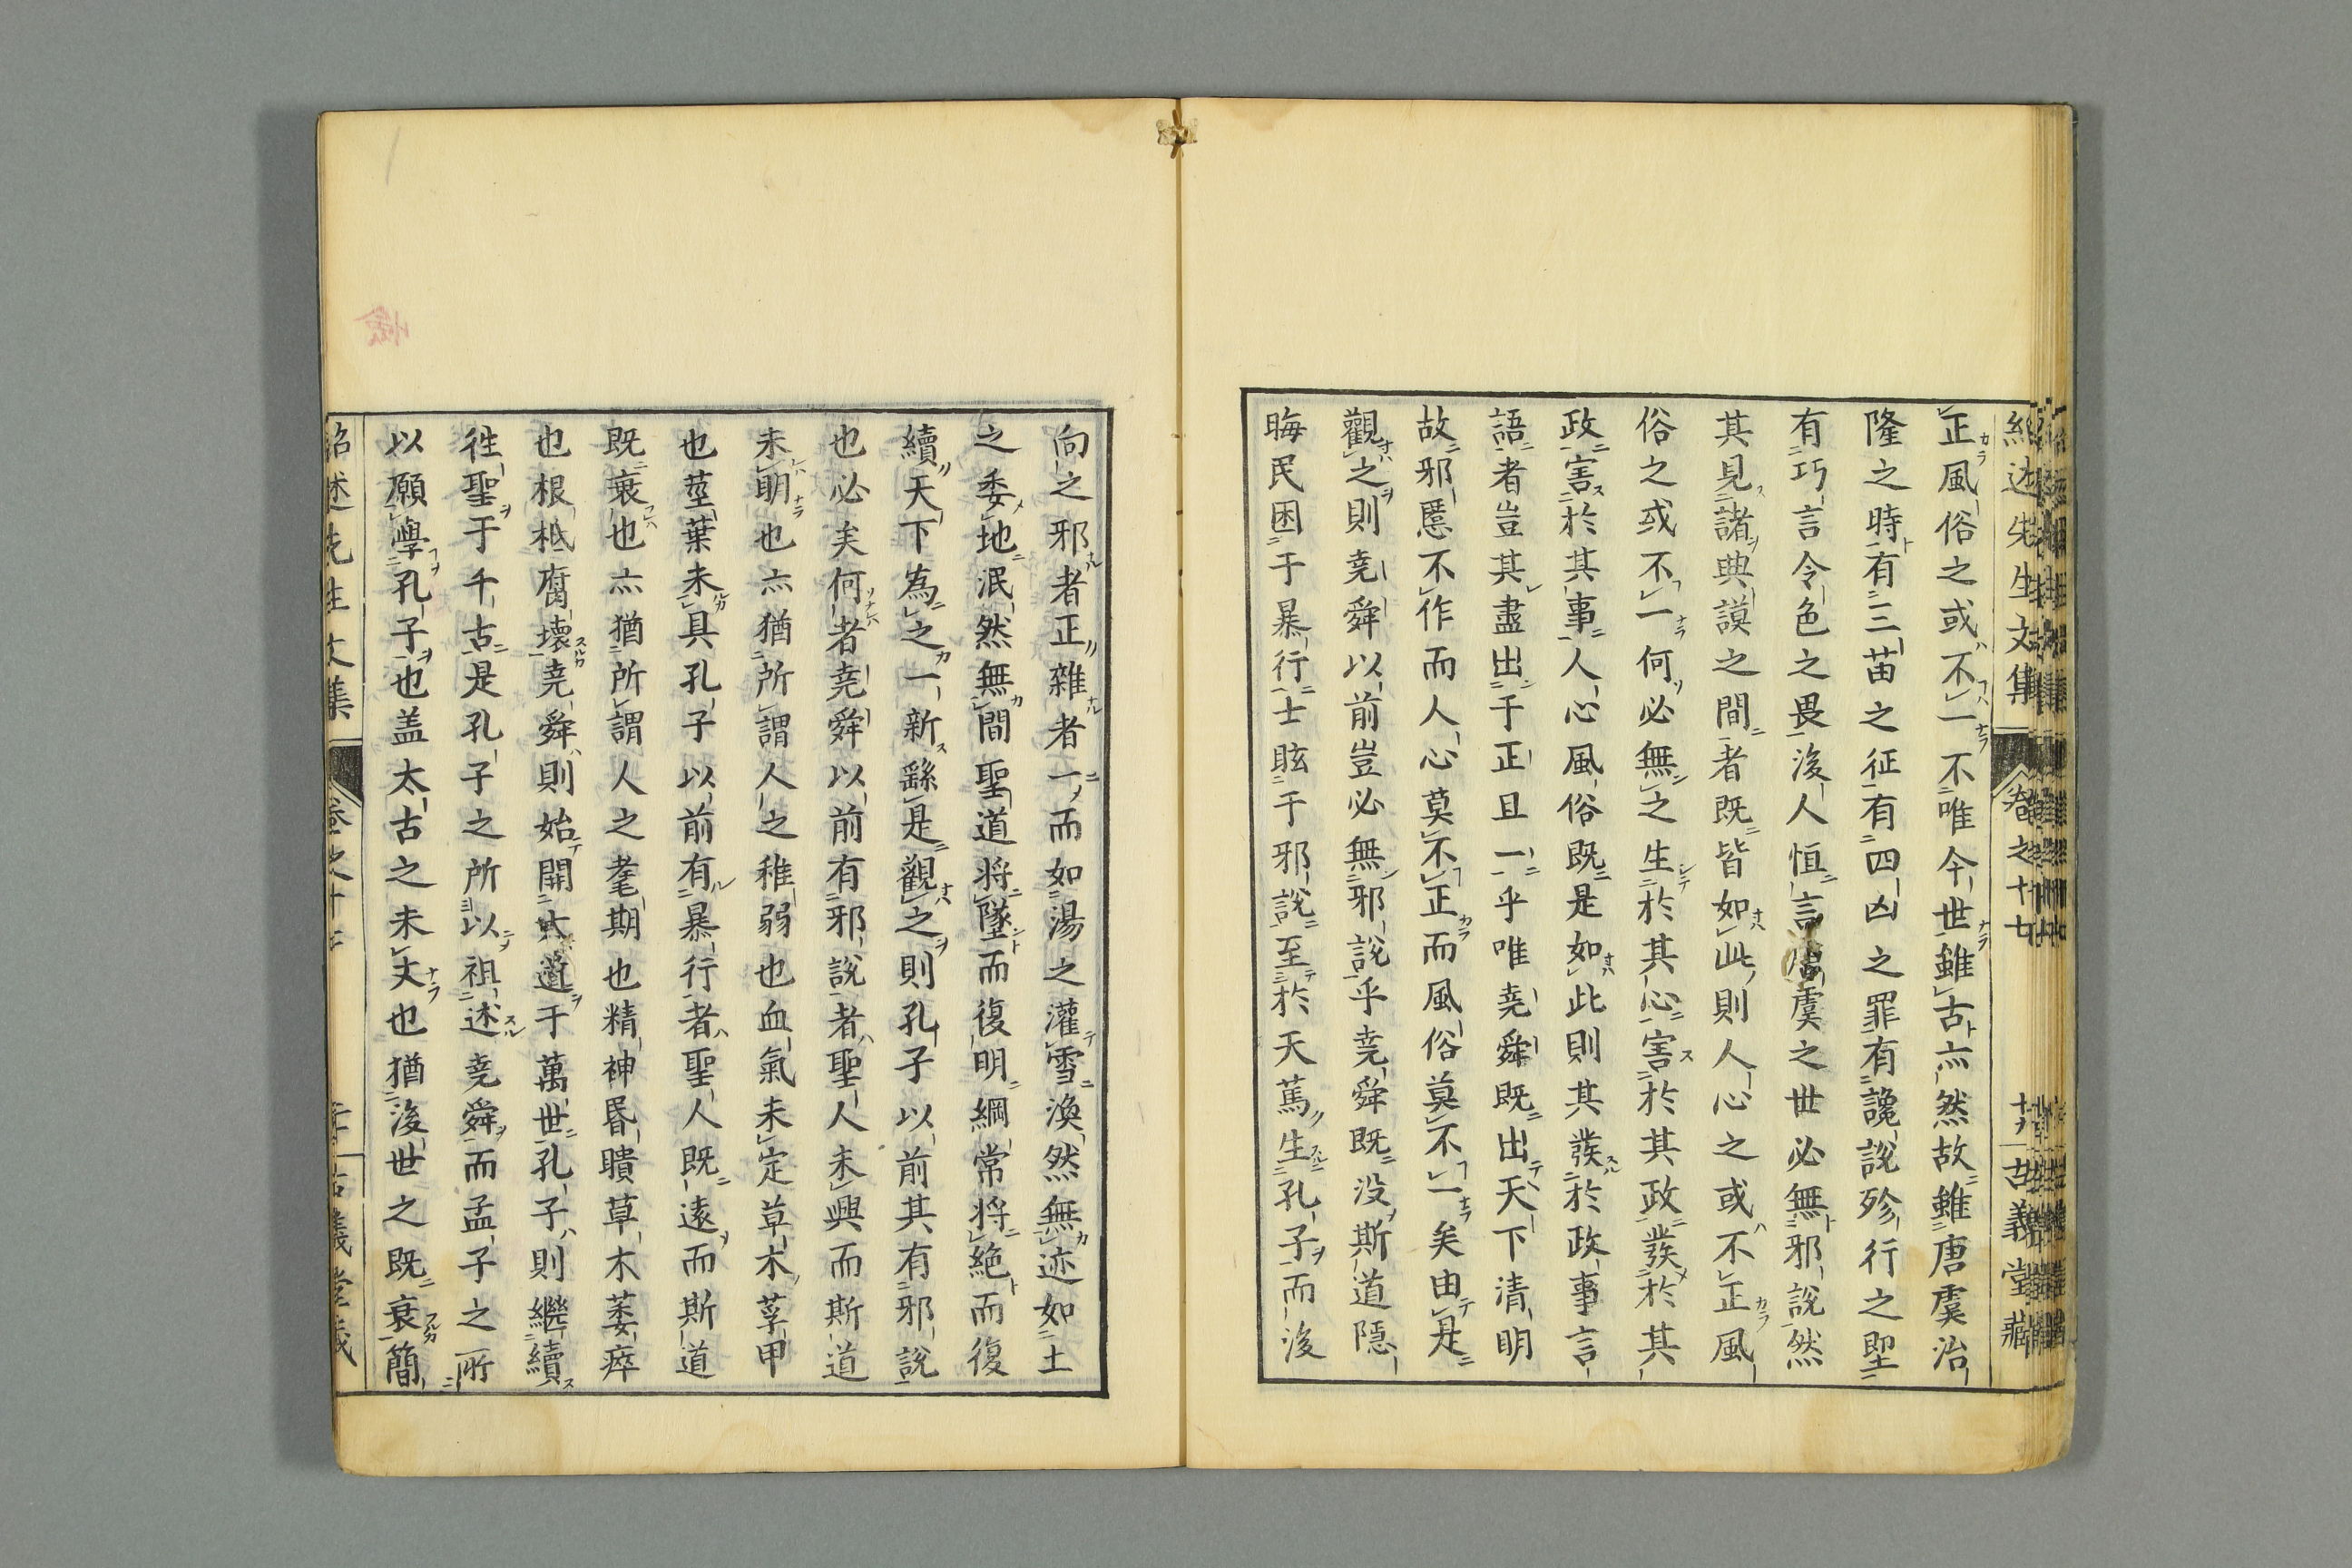 紹述先生文集 卷之十七 十九 古義堂藏
正風俗之或不一不唯今世雖古亦然故雖唐虞治
隆之時有三苗之征有四凶之罪有讒說殄行之堲
有巧言令色之畏後人恒言唐虞之世必無邪說然
其見諸典謨之間者既皆如此則人心之或不正風
俗之或不一何必無之生於其心害於其政發於其
政害於其事人心風俗既是如此則其發於政事言
語者豈其盡出于正且一乎唯堯舜既出天下清明
故邪慝不作而人心莫不正而風俗莫不一矣由是
觀之則堯舜以前豈必無邪說乎堯舜既没斯道隱
晦民困于暴行士眩于邪說至於天篤生孔子而後
向之邪者正雜者一而如湯之灌雪渙然無迹如土
之委地泯然無間聖道將墜而復明綱常將絶而復
續天下為之一新繇是觀之則孔子以前其有邪說
也必矣何者堯舜以前有邪說者聖人未興而斯道
未明也亦猶所謂人之稚弱也血氣未定草木莩甲
也莖葉未具孔子以前有暴行者聖人既遠而斯道
既衰也亦猶所謂人之耄期也精神昬瞶草木萎瘁
也根柢腐壞堯舜則始開大道于萬世孔子則繼續
徃聖于千古是孔子之所以祖述堯舜而孟子之所
以願學孔子也盖太古之未丈也猶後世之既衰簡
紹述先生文集 卷之十七 古義堂藏